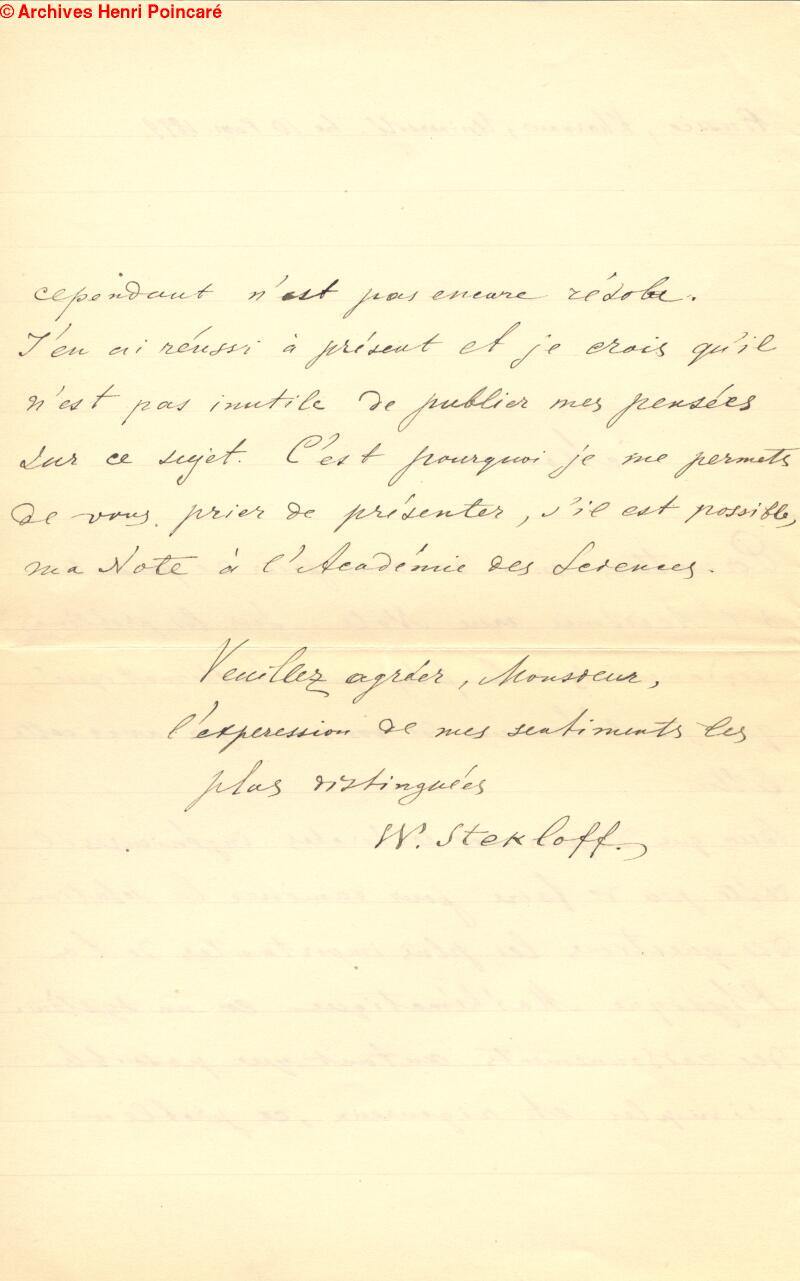 © Archives Henri Poincaré
cependant n'est pas encore résolu.
J'en ai réussi à présent et je crois qu'il
n'est pas inutile de publier mes pensées
sur ce sujet. C'est pourquoi je me permets
de vous prier de présenter, s'il est possible,
ma Note à l'Académie des Sciences.
Veuillez agréer, Monsieur,
l'experession de mes sentiments les
plus distinguées
W. Stekloff.